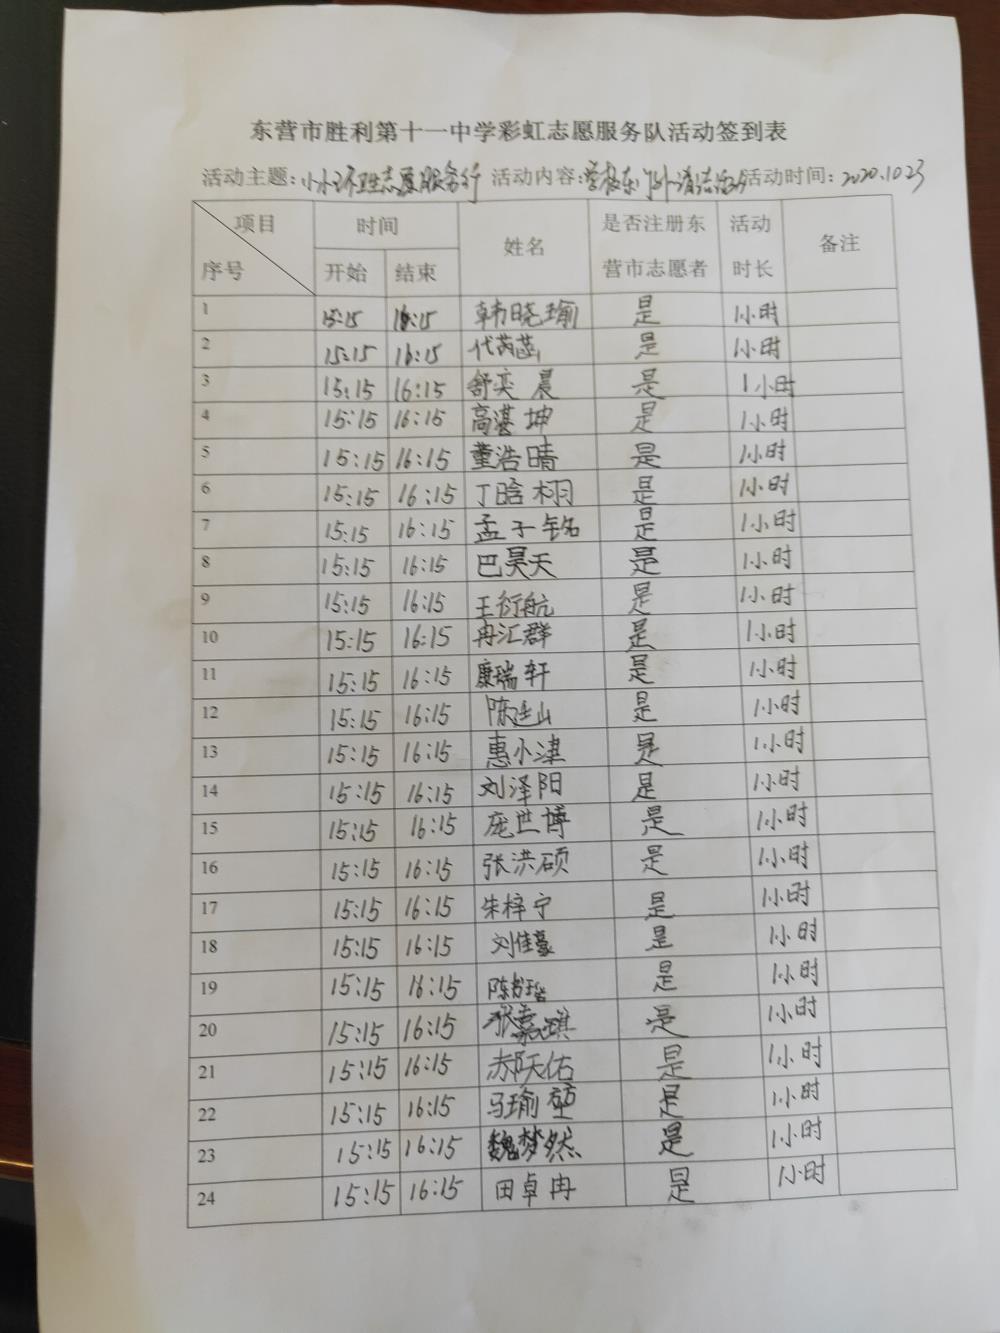 东营市胜利第十一中学彩虹志愿服务队活动签到表
活动主题：小小环卫生志愿服务行 活动内容：学校东门外清洁活动 活动时间：2020.10.23
项目 时间 姓名 是否注册东 活动 备注
序号 开始 结束 营市志愿者 时长
1 15:15 16:15 韩晓瑜 是 1小时
2 15:15 16:15 代芮菡 是 1小时
3 15:15 16:15 舒奕晨 是 1小时
4 15:15 16:15 高湛坤 是 1小时
5 15:15 16:15 董浩晴 是 1小时
6 15:15 16:15 丁晗栩 是 1小时
7 15:15 16:15 孟子铭 是 1小时
8 15:15 16:15 巴昊天 是 1小时
9 15:15 16:15 王衍航 是 1小时
10 15:15 16:15 冉汇群 是 1小时
11 15:15 16:15 康瑞轩 是 1小时
12 15:15 16:15 陈延山 是 1小时
13 15:15 16:15 惠小津 是 1小时
14 15:15 16:15 刘泽阳 是 1小时
15 15:15 16:15 庞世博 是 1小时
16 15:15 16:15 张洪硕 是 1小时
17 15:15 16:15 朱梓宁 是 1小时
18 15:15 16:15 刘佳豪 是 1小时
19 15:15 16:15 陈 是 1小时
20 15:15 16:15 张嘉琪 是 1小时
21 15:15 16:15 天佑 是 1小时
22 15:15 16:15 马瑜 是 1小时
23 15:15 16:15 魏梦然 是 1小时
24 15:15 16:15 田卓冉 是 1小时